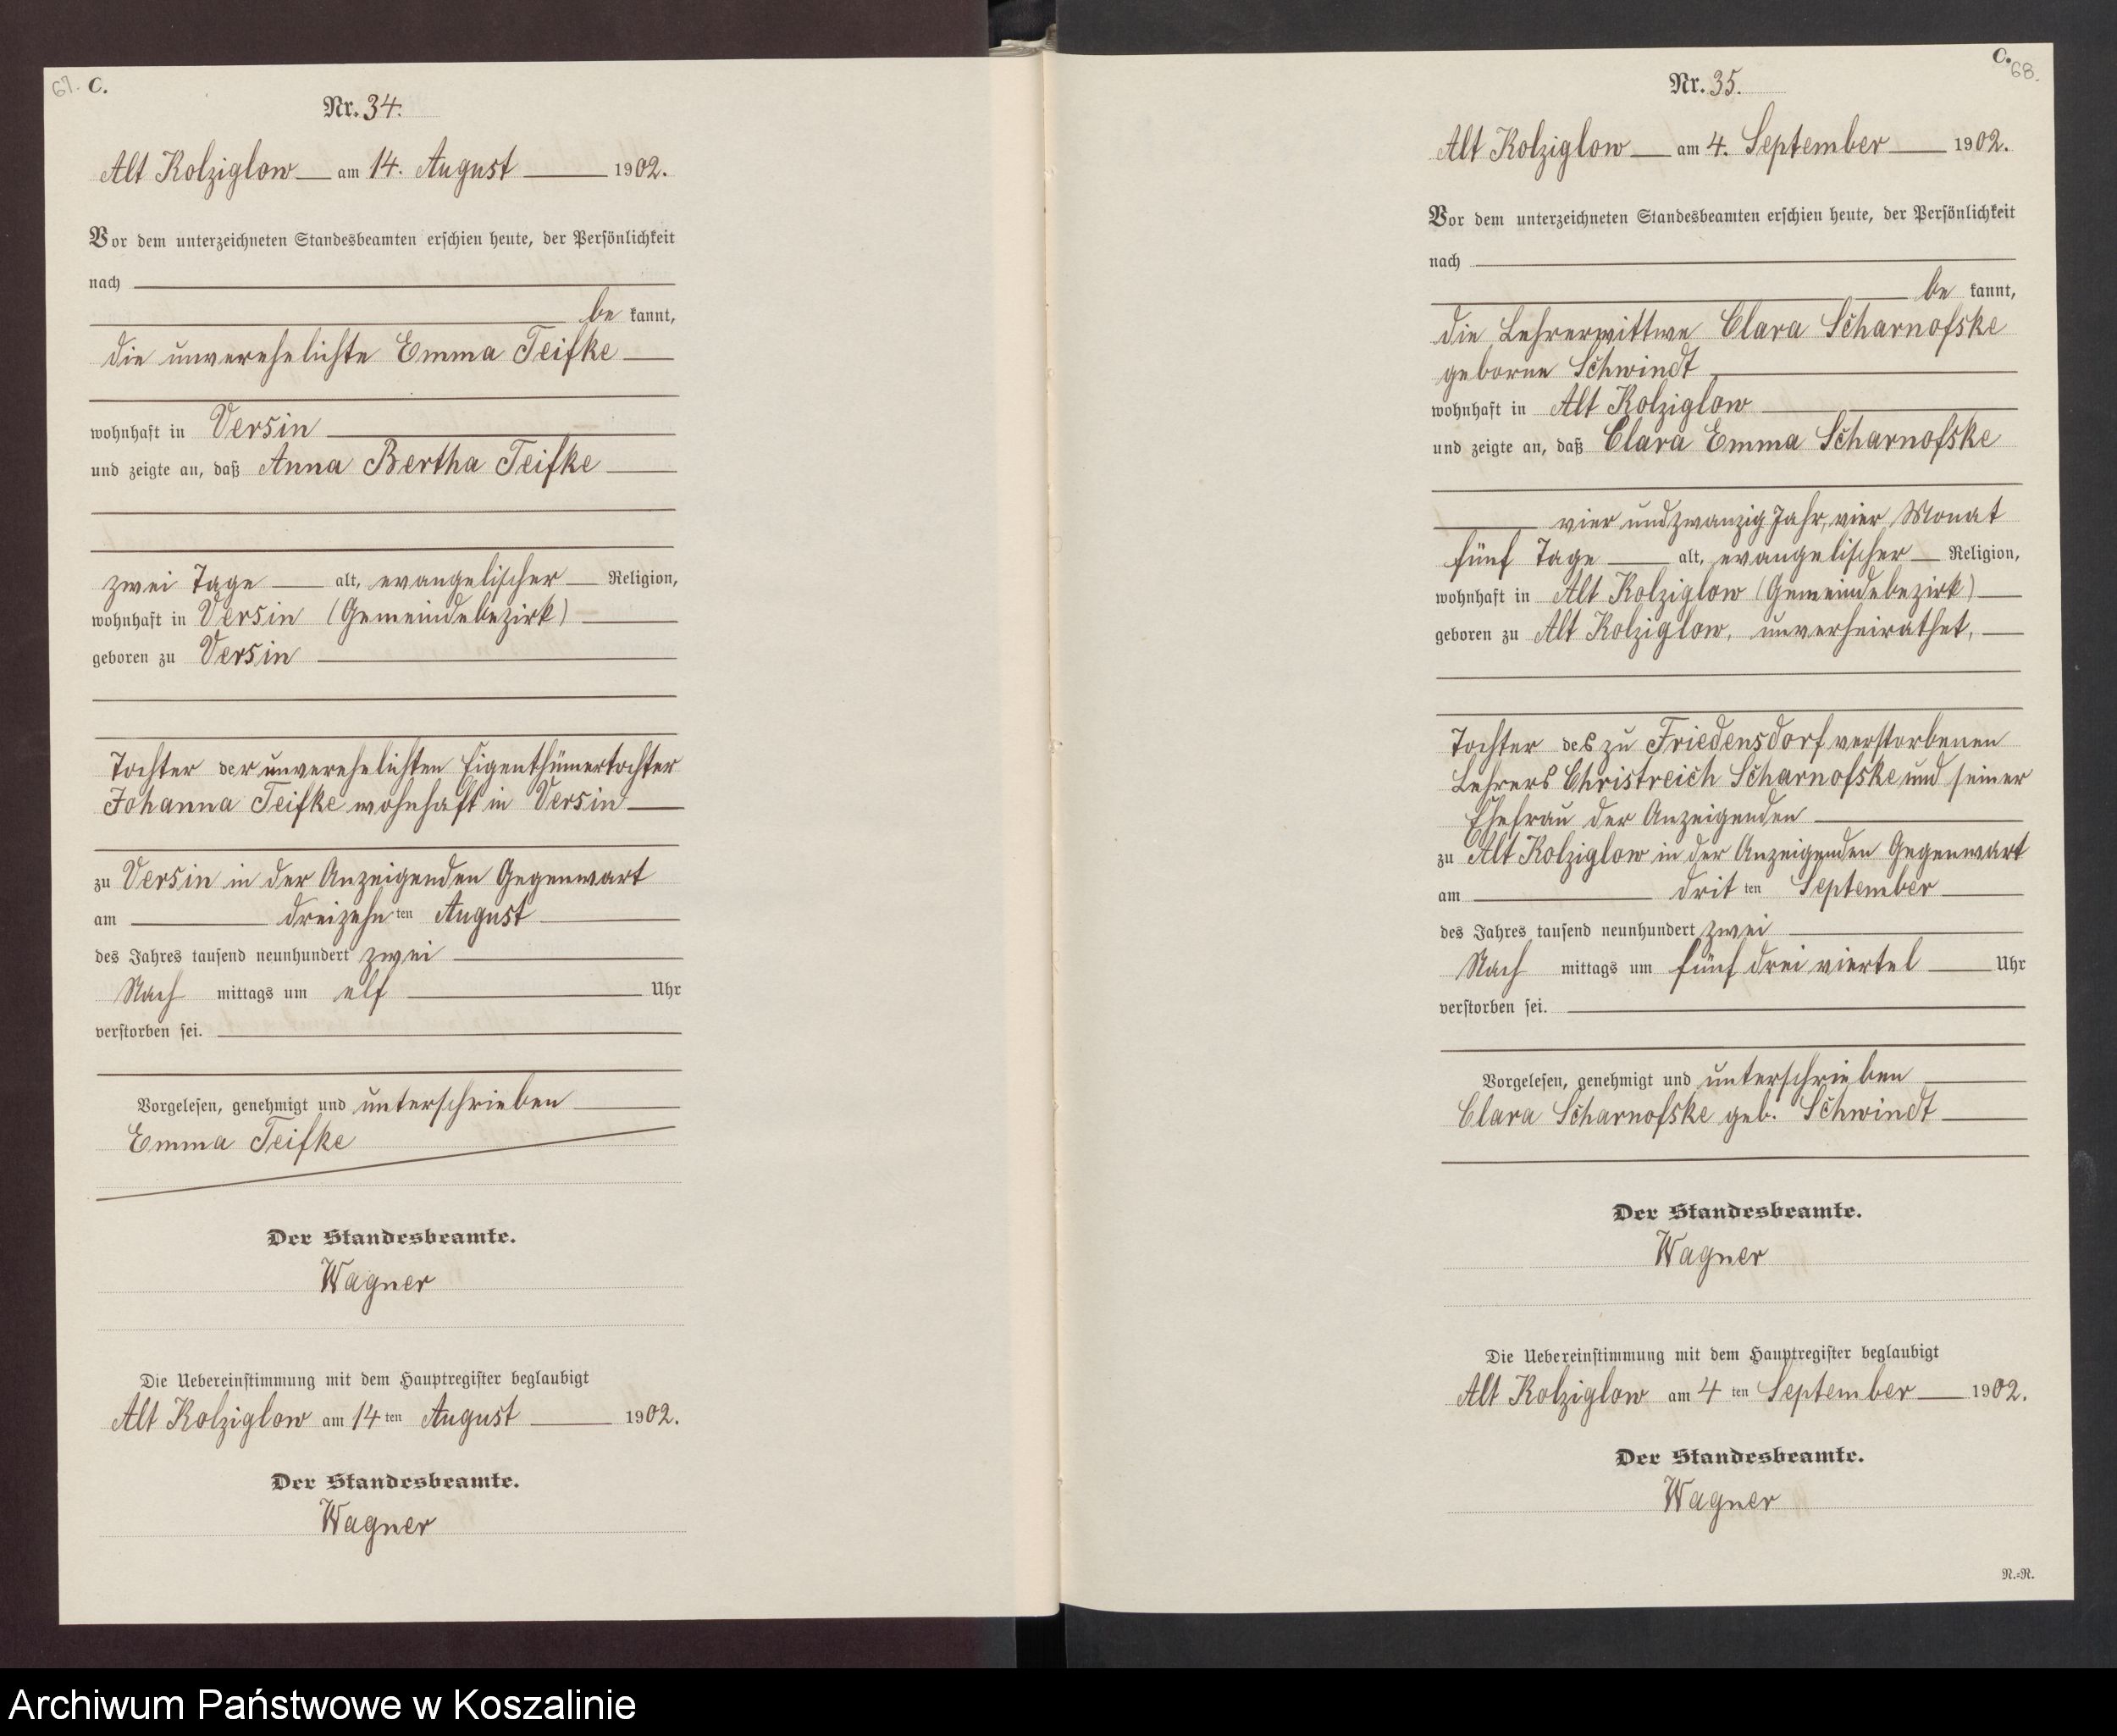 67. C.
Nr. 34.
Alt Kolziglow am 14. August 1902.
Vor dem unterzeichneten Standesbeamten erschien heute, der Persönlichkeit
nach
be kannt,
die unverehelichte Emma Teifke
wohnhaft in Versin
und zeigte an, daß Anna Bertha Teifke
zwei Tage alt, evangelischer Religion,
wohnhaft in Versin (Gemeindebezirk)
geboren zu Versin
Tochter der unverehelichten Eigenthümertochter
Johanna Teifke wohnhaft in Versin
zu Versin in der Anzeigenden Gegenwart
am dreizehn ten August
des Jahres tausend neunhundert zwei
Nach mittags um elf Uhr
verstorben sei.
Vorgelesen, genehmigt und unterschrieben
Emma Teifke
Der Standesbeamte.
Wagner
Die Uebereinstimmung mit dem Hauptregister beglaubigt
Alt Kolziglow am 14 ten August 1902.
Der Standesbeamte.
Wagner
C. 68.
Nr. 35.
Alt Kolziglow am 4. September 1902.
Vor dem unterzeichneten Standesbeamten erschien heute, der Persönlichkeit
nach
be kannt,
die Lehrerwittwe Clara Scharnofske
geborne Schwindt
wohnhaft in Alt Kolziglow
und zeigte an, daß Clara Emma Scharnofske
vier und zwanzig Jahr, vier Monat
fünf Tage alt, evangelischer Religion,
wohnhaft in Alt Kolziglow (Gemeindebezirk)
geboren zu Alt Kolziglow, unverheirathet,
Tochter des zu Friedensdorf verstorbenen
Lehrers Christreich Scharnofske und seiner
Ehefrau der Anzeigenden
zu Alt Kolziglow in der Anzeigenden Gegenwart
am drit ten September
des Jahres tausend neunhundert zwei
Nach mittags um fünf drei viertel Uhr
verstorben sei.
Vorgelesen, genehmigt und unterschrieben
Clara Scharnofske geb. Schwindt
Der Standesbeamte.
Wagner
Die Uebereinstimmung mit dem Hauptregister beglaubigt
Alt Kolziglow am 4 ten September 1902.
Der Standesbeamte.
Wagner
N.=R.
Archiwum Państwowe w Koszalinie